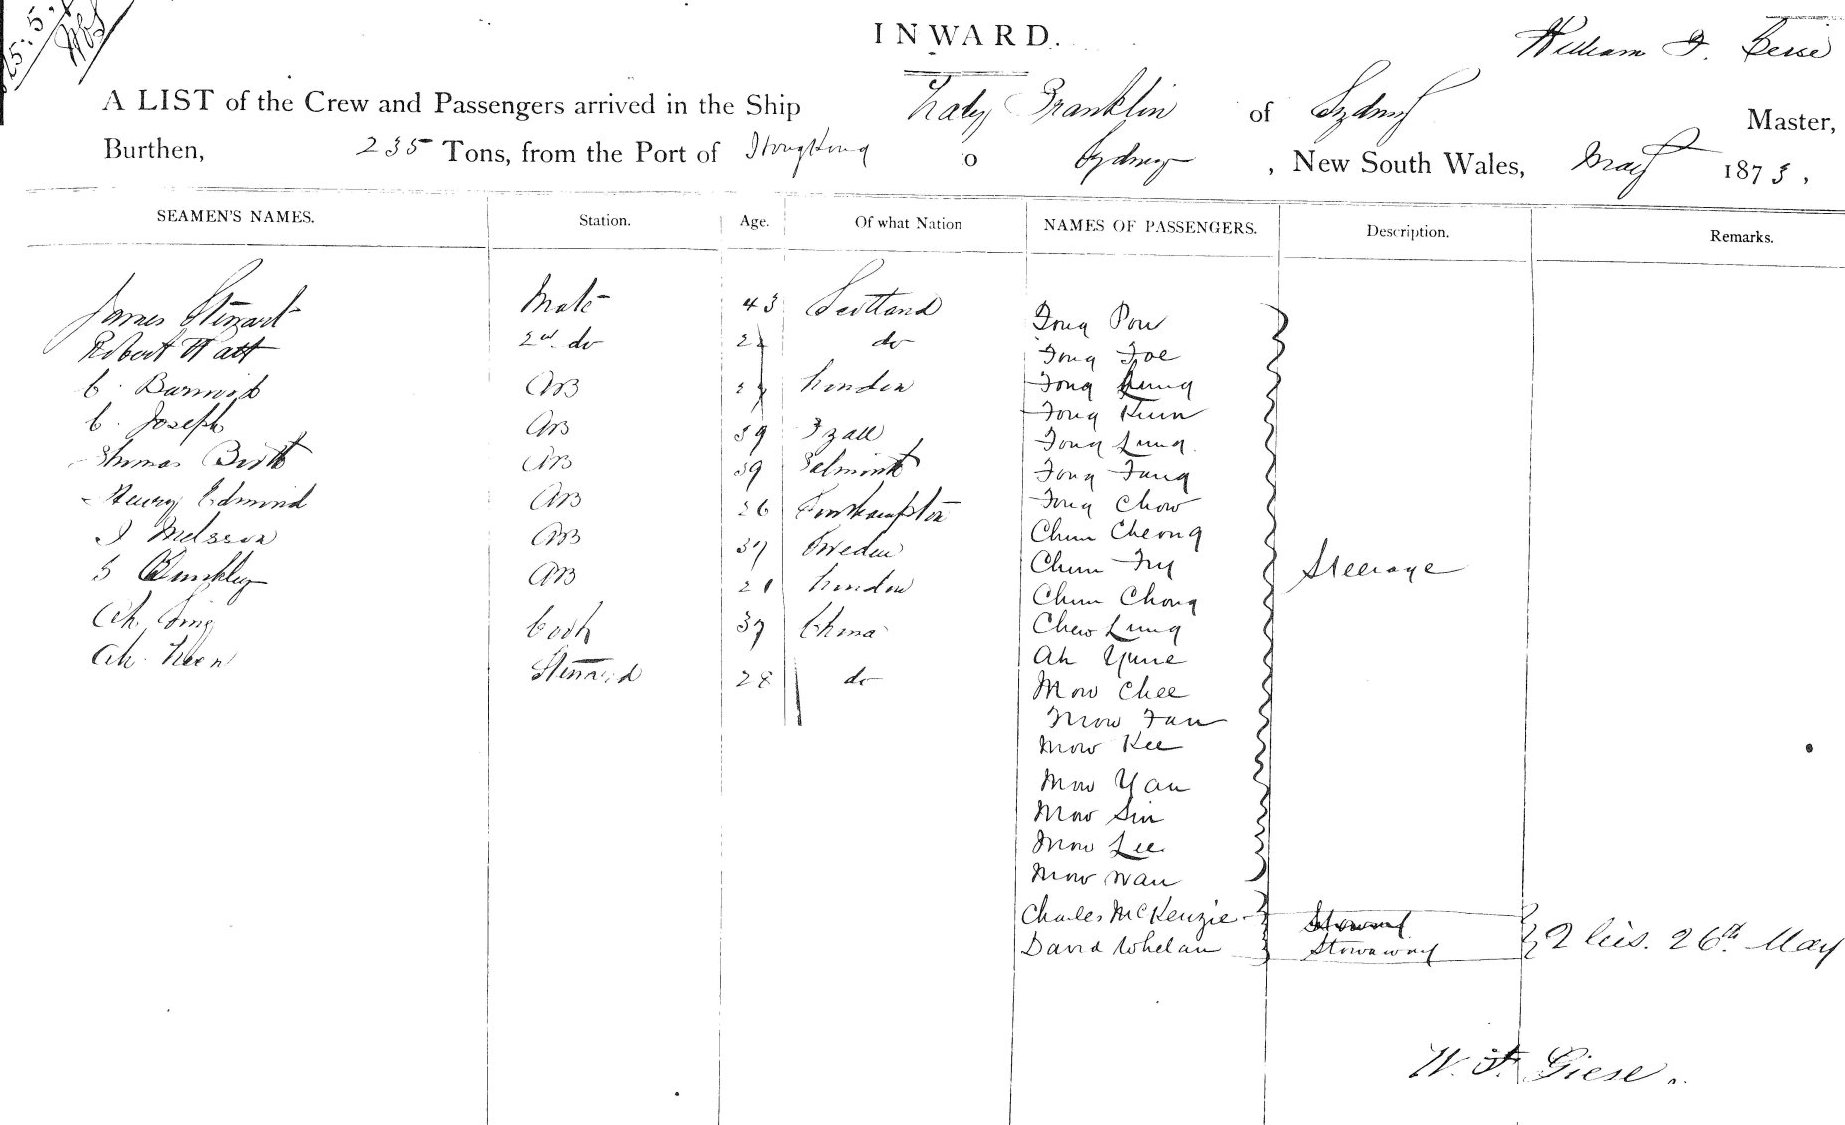 25.5.
INWARD.
William F. Giese
A LIST of the Crew and Passengers arrived in the Ship Lady Franklin of Sydney Master,
Burthen, 235 Tons, from the Port of Hongkong o Sydney, New South Wales, May 1873,
SEAMEN'S NAMES. Station. Age. Of what Nation NAMES OF PASSENGERS. Description. Remarks.
James Stewart Mate 43 Scotland
Robert Watt 2nd. do do
C. AB London
C. Joseph AB 39
Thomas AB 39
Henry Edmond AB 26
AB 37 Sweden
AB 21 London
Ah. Sing Cook 37 China
Ah. Keen Steward 28 do
Fong Pow
Fong Foe
Fong Kung
Fong Kum
Fong Lung
Fong Fang
Fong Chow
Chun Cheong
Chun
Chun Chong
Chew Lung
Steerage
Ah Yune
Mow Chee
Mow Fan
Mow Kee
Mow Yan
Mow Sin
Mow Lee
Mow Wan
Charles McKenzie
David Whelan Stowaway
2 26th May
W. F. Giese.